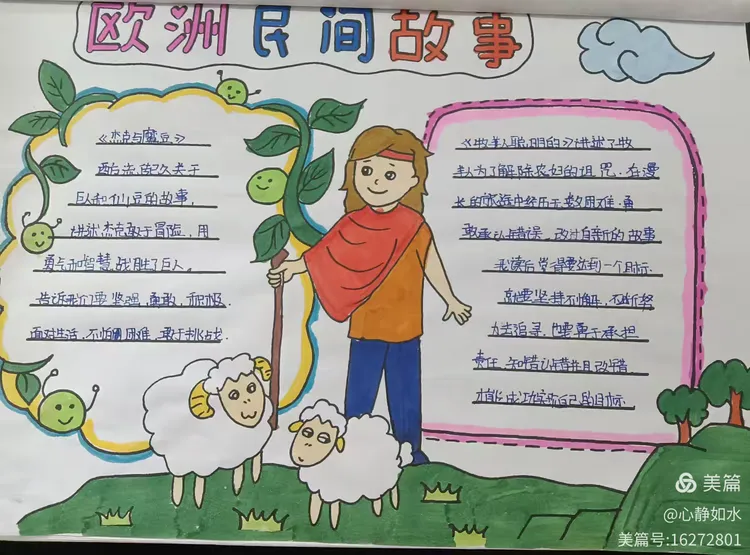 欧洲民间故事
《杰克与魔豆》
西方流传已久关于
巨人和仙豆的故事,
讲述杰克敢于冒险,用
勇气和智慧战胜了巨人。
告诉我们要坚强,勇敢,积极
面对生活,不怕困难,敢于挑战。
《牧羊人聪明的》讲述了牧
羊人为了解除农妇的诅咒.在漫
长的旅途中经历无数困难.勇
敢承认错误,改过自新的故事
我读后觉得要达到一个目标.
就要坚持不懈,不断努
力去追寻,也要勇于承担
责任、知错认错并且改错
才能达到自己的目标.
美篇
@心静如水
美篇号:16272801